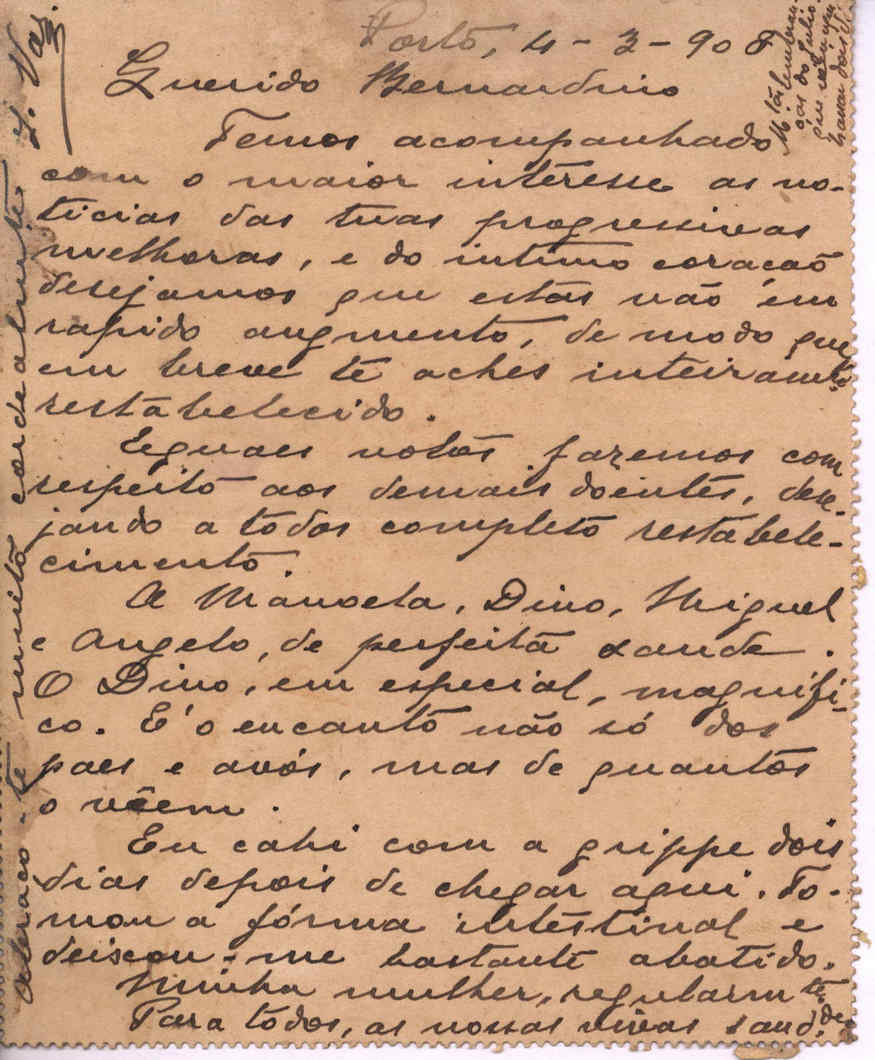 Porto, 4-3-908
Querido Bernardino
Temos acompanhado
com o maior interesse as no-
ticias das tuas progressivas
melhoras, e do intimo coração
desejamos que estas vão em
rapido augmento, de modo que
em breve te aches inteiramte
restabelecido.
Eguaes votos fazemos com
respeito aos demais doentes, dese-
jando a todos completo restabele-
cimento.
A Manoela, Dino, Miguel
e Angelo, de perfeita saude.
O Dino, em especial, magnifi-
co. E' o encanto não só dos
paes e avós, mas de quantos
o vêem.
Eu cahi com a grippe dois
dias depois de chegar aqui. To-
mou a fórma intestinal e
deixou-me bastante abatido.
Minha mulher, regularmte.
Para todos, as nossas vivas saudde.
Abraço-te muito cordealmente
J. Vaz
Mtas lembran-
ças do Julio
que